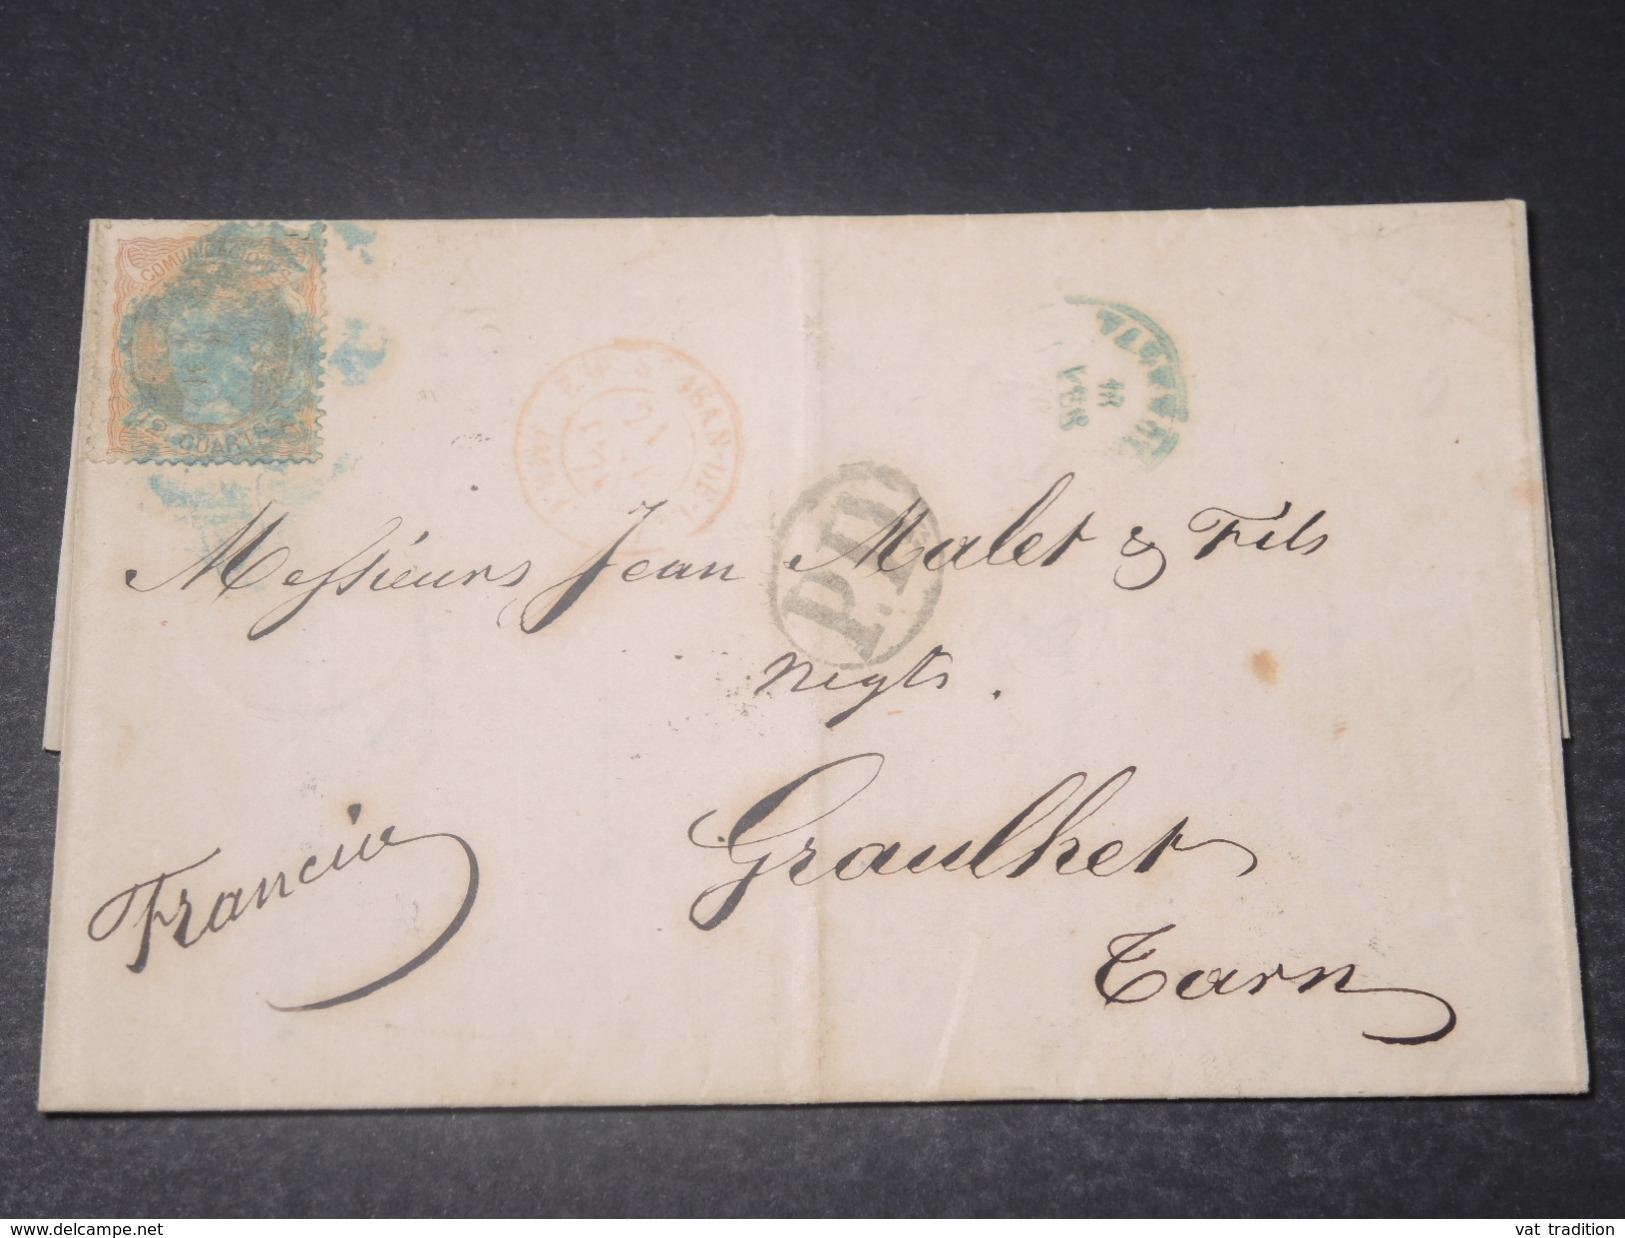 COMUNICACIONES
12 CUARTOS
31
ESP. ST JEAN-DE-
21
P.D.
Messieurs Jean Malet & Fils
Negts.
Graulhet
Tarn
Francia
www.delcampe.net
vat tradition